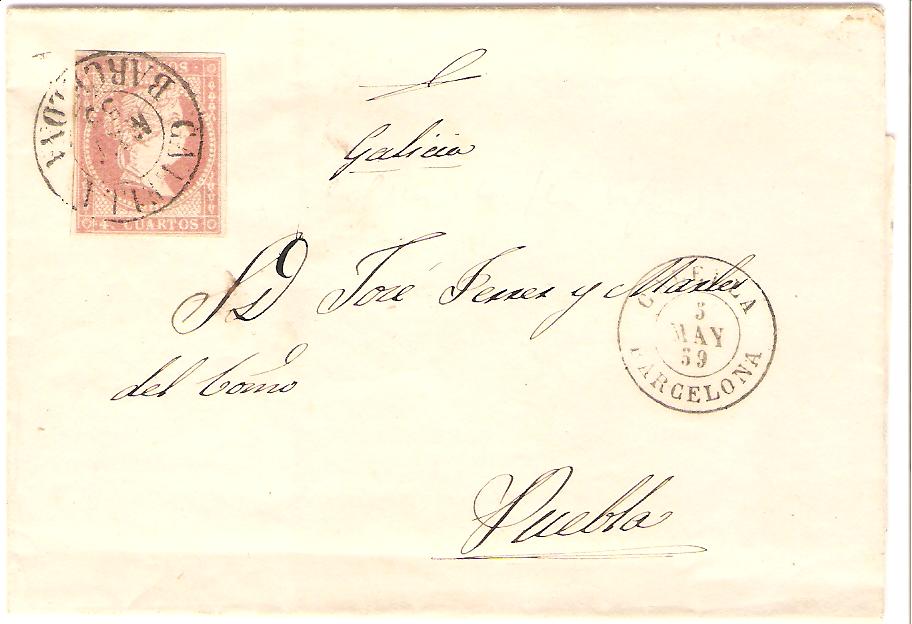 BARCELONA
4. CUARTOS
Galicia
Sr D José Ferrer y
del Como
5
MAY
59
BARCELONA
Puebla